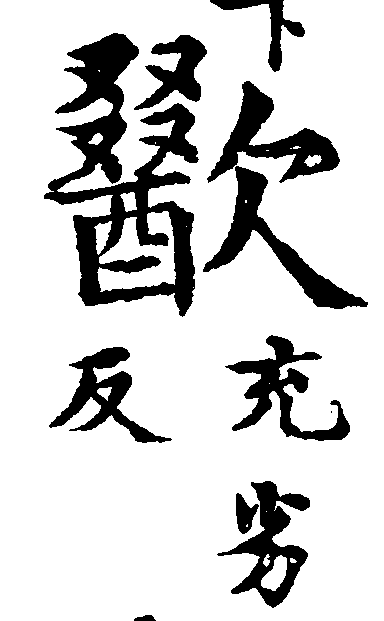 歠
充劣
反